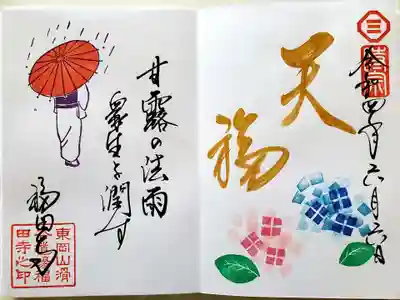 令和四年六月六日
天福
甘露の法雨
衆生を潤す
福田寺
東岡山
田寺之印